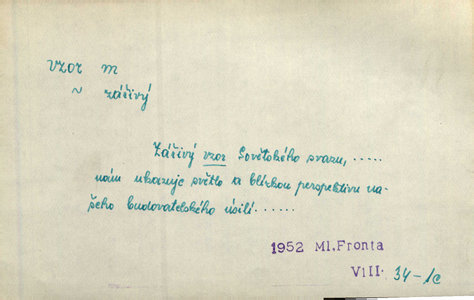 vzor m
~ zářivý
Zářivý vzor Sovětského svazu, .....
nám ukazuje světlo a blízkou perspektivu na-
šeho budovatelského úsilí......
1952 Ml.Fronta
VIII. 34-1c